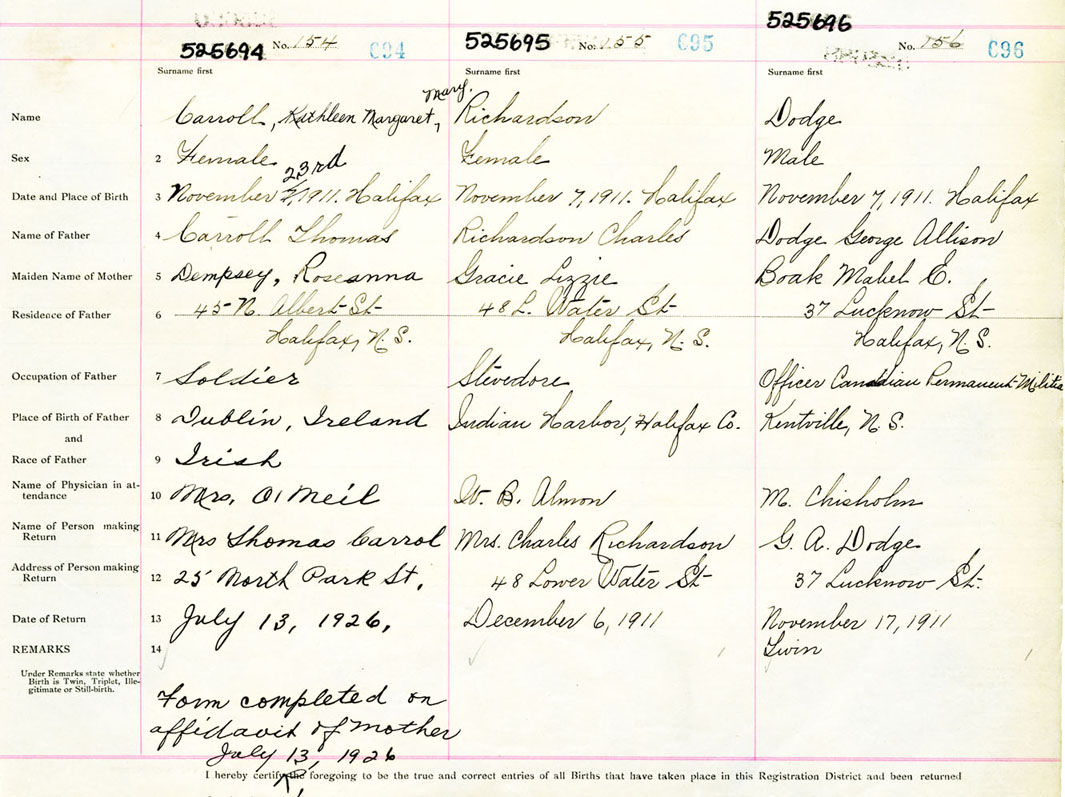 525694 No. 154 C94 525695 No. 155 C95 525696 No. 156 C96
Surname first Surname first Surname first
Mary.
Name Carroll, Kathleen Margaret, Richardson Dodge
Sex 2 Female Female Male
23rd
Date and Place of Birth 3 November 1911. Halifax November 7, 1911. Halifax November 7, 1911. Halifax
Name of Father 4 Carroll Thomas Richardson Charles Dodge George Allison
Maiden Name of Mother 5 Dempsey, Roseanna Gracie Lizzie Boak Mabel E.
Residence of Father 6 45 N. Albert St 48 L. Water St 37 Lucknow St
Halifax, N.S. Halifax, N.S. Halifax, N.S.
Occupation of Father 7 Soldier Stevedore Officer Canadian Permanent Militia
Place of Birth of Father 8 Dublin, Ireland Indian Harbor, Halifax Co. Kentville, N.S.
and
Race of Father 9 Irish
Name of Physician in at-
tendance 10 Mrs. O'Neil W. B. Almon M. Chisholm
Name of Person making
Return 11 Mrs Thomas Carrol Mrs. Charles Richardson G. A. Dodge
Address of Person making
Return 12 25 North Park St. 48 Lower Water St 37 Lucknow St.
Date of Return 13 July 13, 1926, December 6, 1911 November 17, 1911
REMARKS 14 Twin
Under Remarks state whether
Birth is Twin, Triplet, Ille-
gitimate or Still-birth.
Form completed on
affidavit of Mother
July 13, 1926
I hereby certify the foregoing to be the true and correct entries of all Births that have taken place in this Registration District and been returned